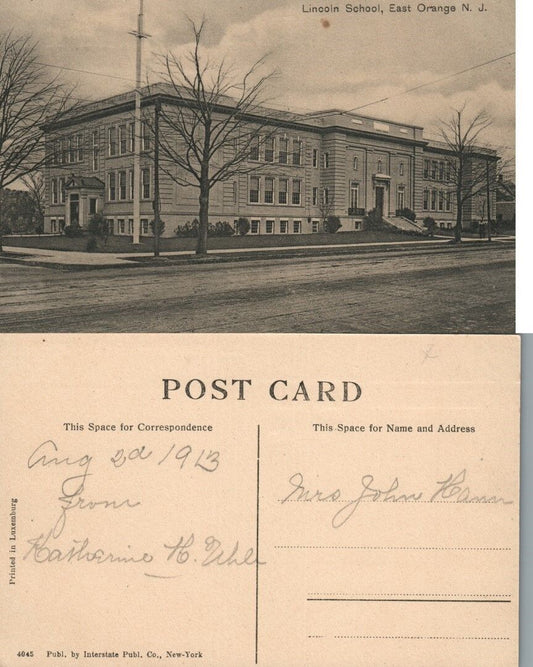 Lincoln School, East Orange N. J.
POST CARD
This Space for Correspondence
This Space for Name and Address
Aug 2d 1913
from
Katharine H. Uhle
Mrs John Hann
Printed in Luxemburg
4045 Publ. by Interstate Publ. Co., New-York